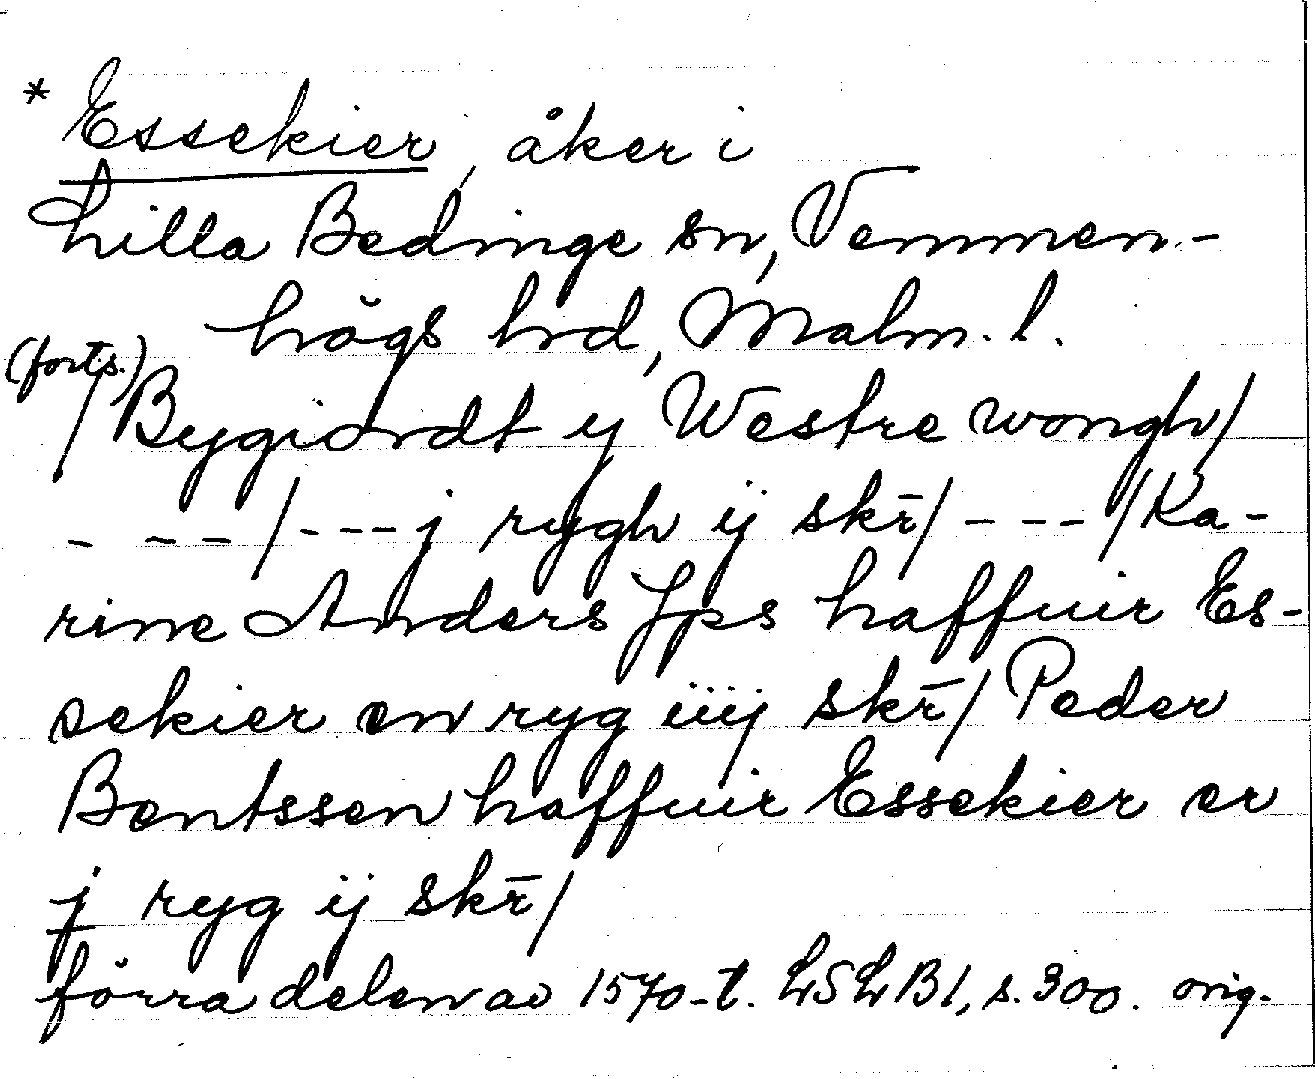 * Essekier, åker i
Lilla Bedinge sn, Vemmen-
högs hrd, Malm. l.
(forts.)
/Bygiordt y Westre wongh/
- - - /- - - j rygh ij skr̄/ - - - /Ka-
rine Anders Jps haffuir Es-
sekier en ryg iiij skr̄/ Peder
Bentssen haffuir Essekier er
j ryg ij skr̄/
förra delen av 1570-t. LSLB1, s. 300. orig.